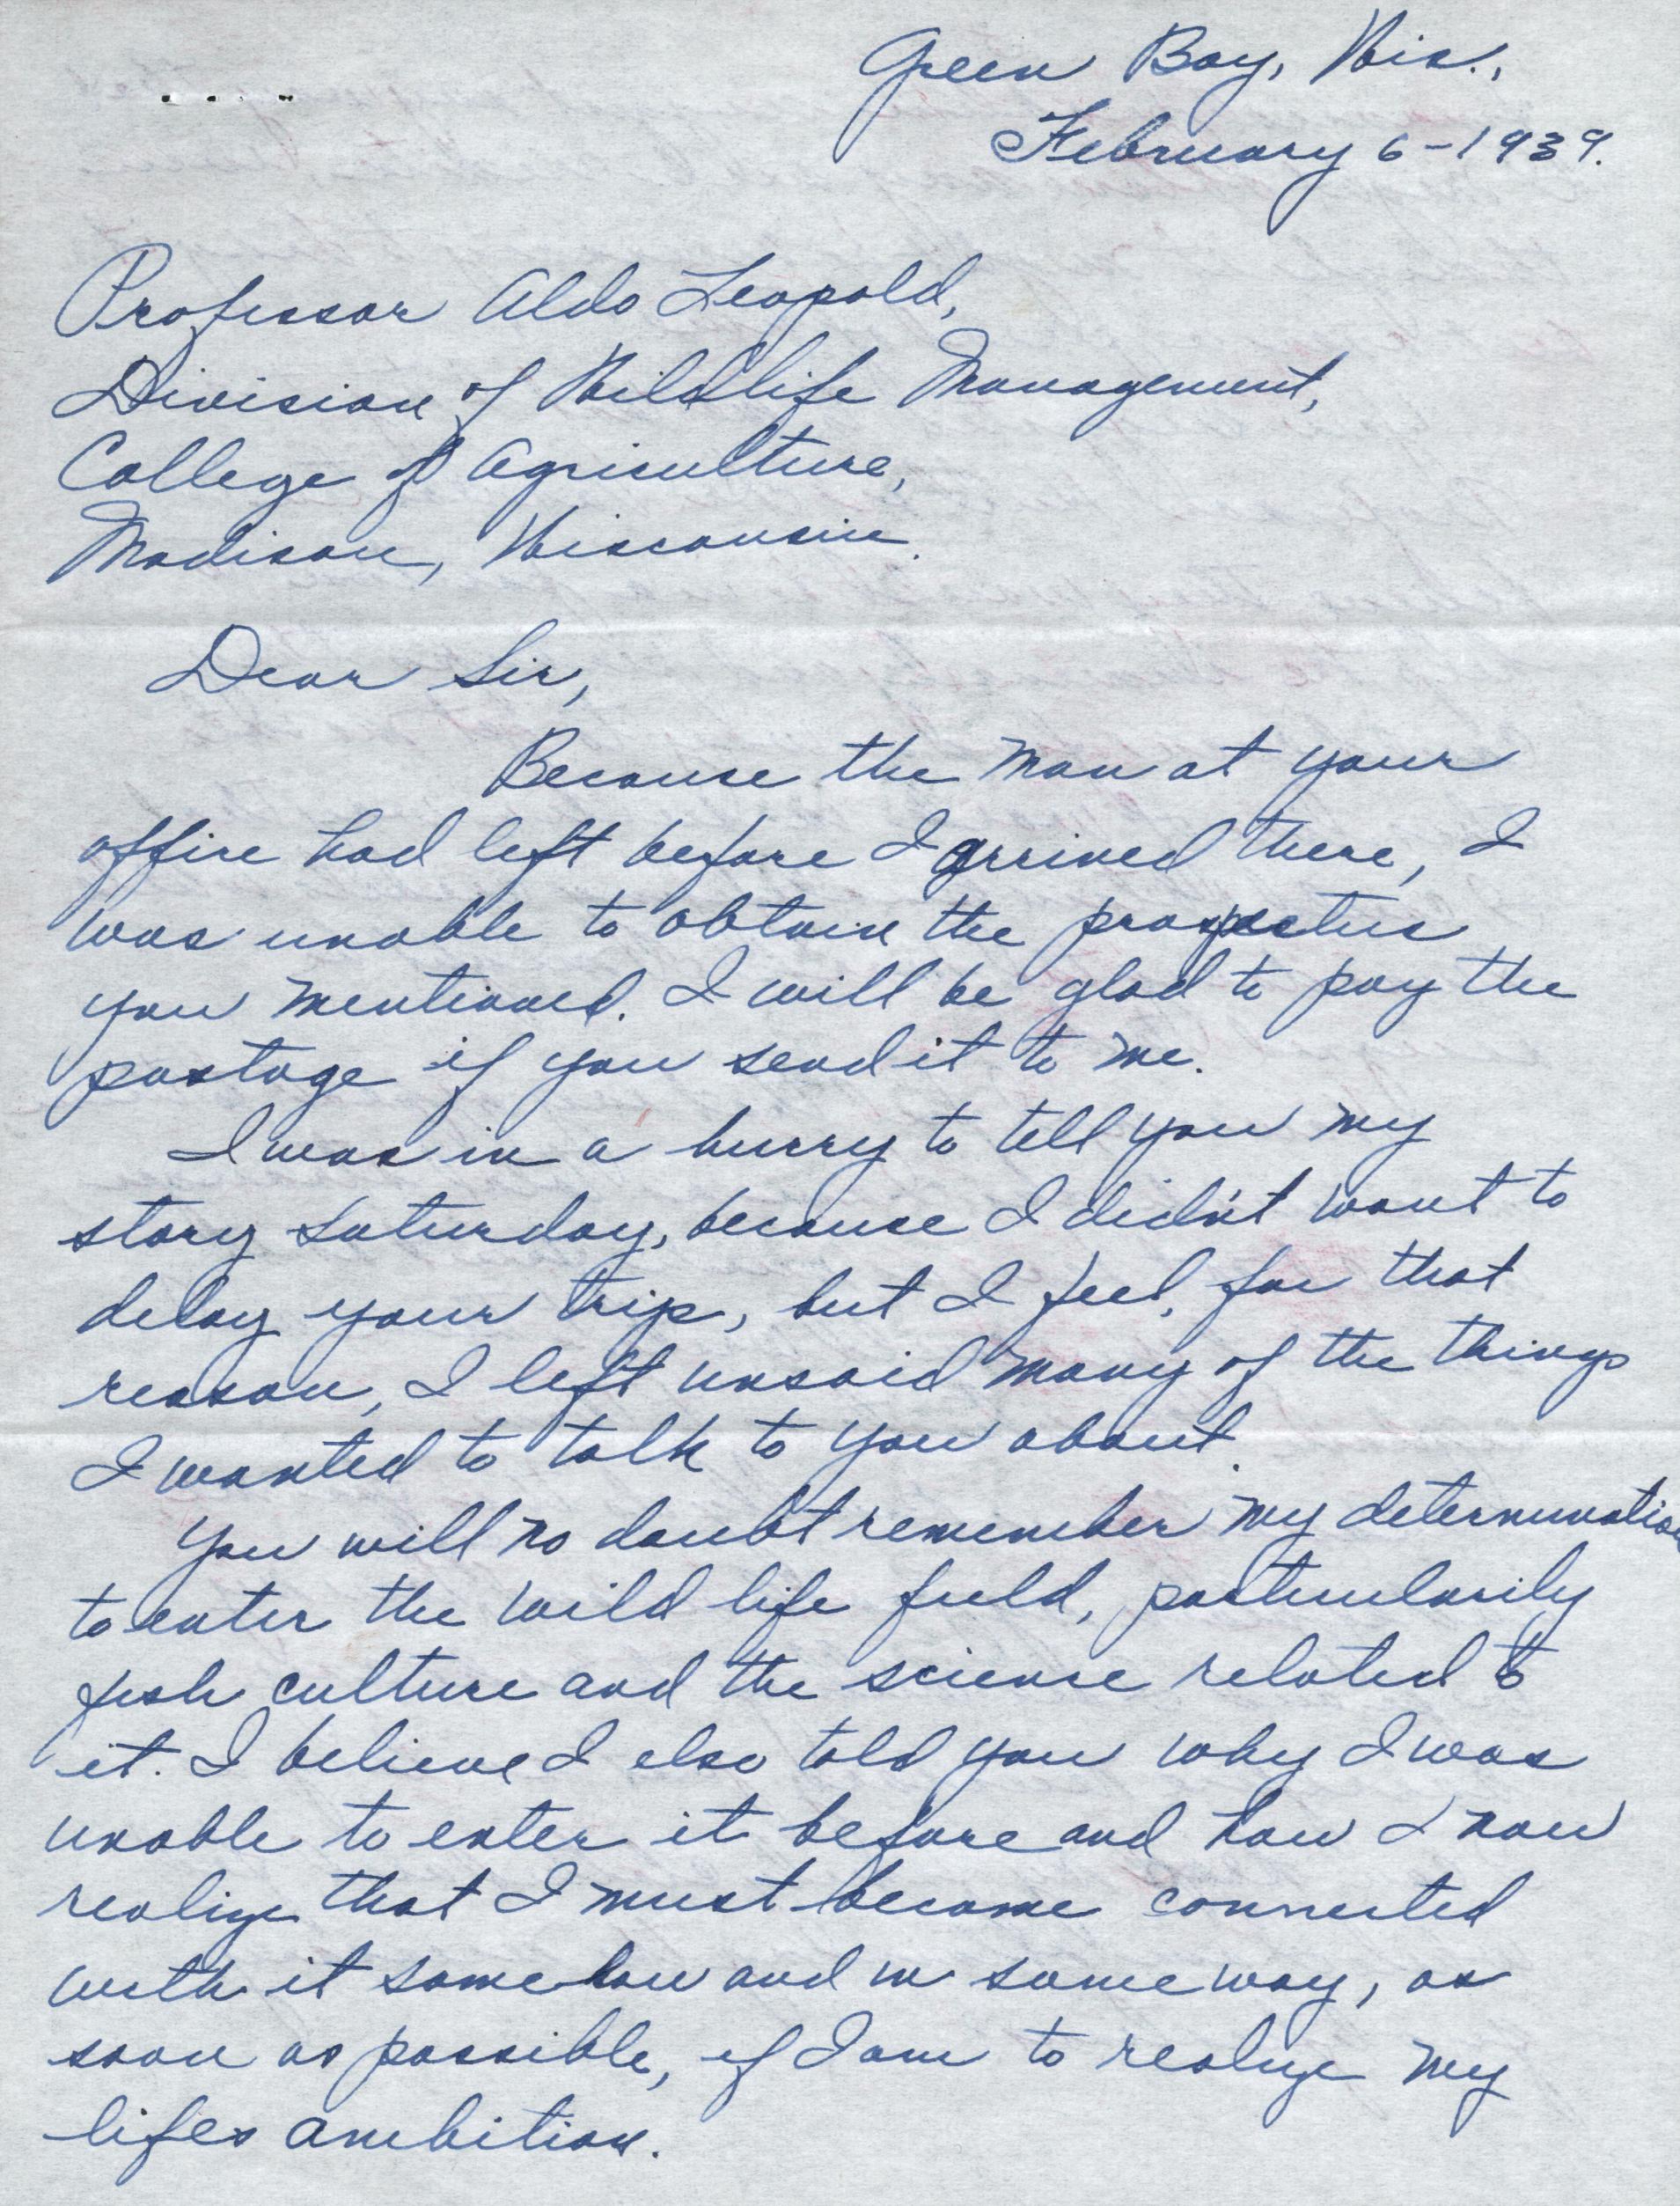 Green Bay, Wis.,
February 6-1939.
Professor Aldo Leopold,
Division of Wildlife Management,
College of Agriculture,
Madison, Wisconsin.
Dear Sir,
Because the man at your
office had left before I arrived there, I
was unable to obtain the prospectus
you mentioned. I will be glad to pay the
postage if you send it to me.
I was in a hurry to tell you my
story Saturday, because I didn't want to
delay your trip, but I feel, for that
reason, I left unsaid many of the things
I wanted to talk to you about.
You will no doubt remember my determination
to enter the wild life field, particularily
fish culture and the science related to
it. I believe I also told you why I was
unable to enter it before and how I now
realize that I must become connected
with it somehow and in some way, as
soon as possible, if I am to realize my
lifes ambition.